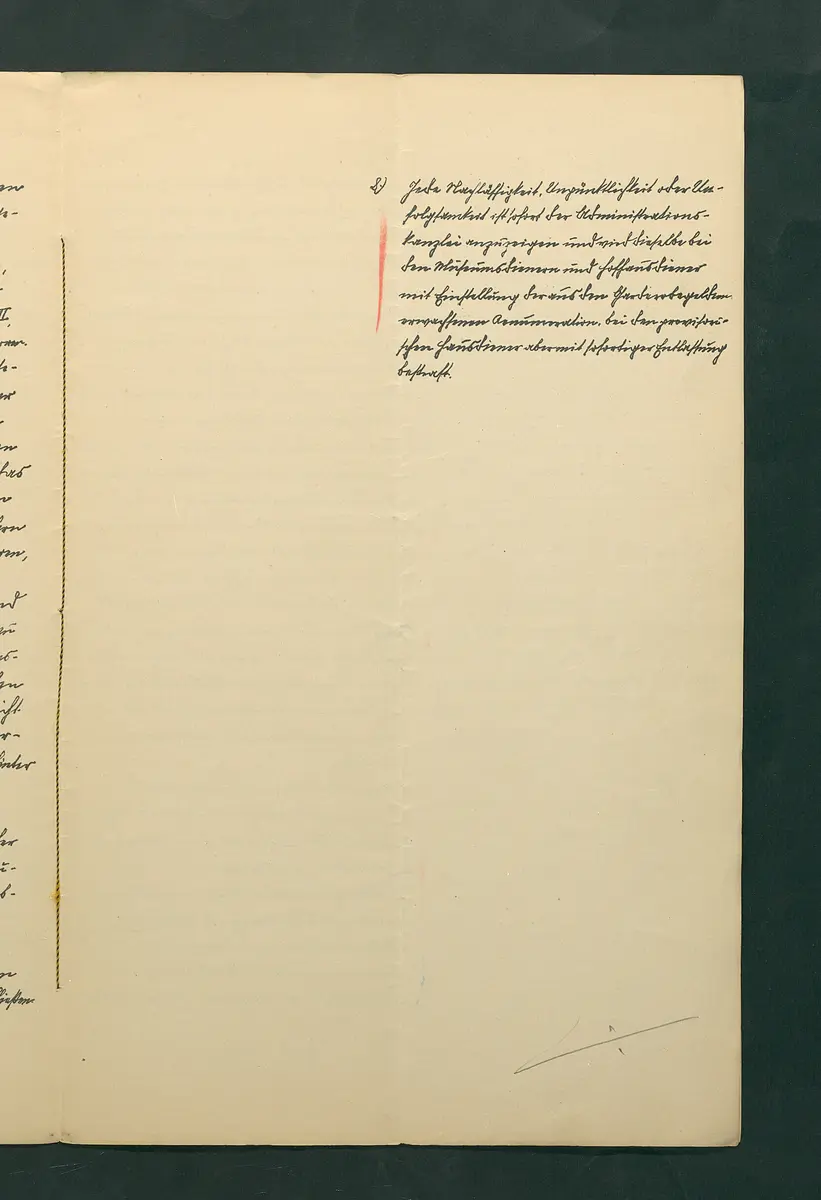 en
e-
,
II,
e-
er
en
das
ern
ren,
nd
zu
s-
en
icht
er-
hinter
er
u-
b-
en
ießen
8.) Jede Nachlässigkeit, Unpünktlichkeit oder Un-
folgsamkeit ist sofort der Administrations-
kanzlei anzuzeigen und wird dieselbe bei
den Museumsdienern und Hofhausdiener
mit Einstellung der aus den Garderobegeldern
erwachsenen Remuneration, bei den provisori-
schen Hausdiener aber mit sofortiger Entlassung
bestraft.